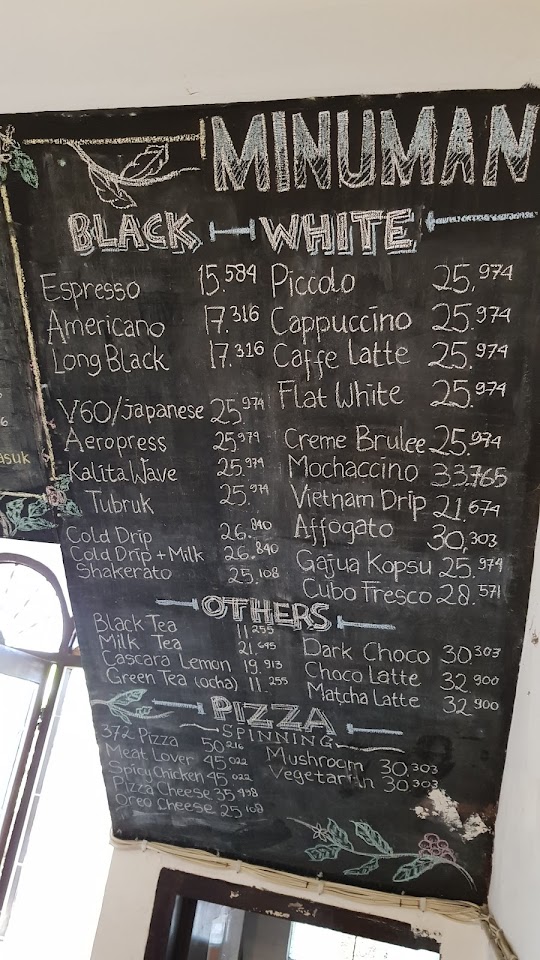 MINUMAN
BLACK
Espresso 15.584
Americano 17.316
Long Black 17.316
V60/Japanese 25.974
Aeropress 25.974
Kalita Wave 25.974
Tubruk 25.974
Cold Drip 26.840
Cold Drip + Milk 26.840
Shakerato 25.108
WHITE
Piccolo 25.974
Cappuccino 25.974
Caffe Latte 25.974
Flat White 25.974
Creme Brulee 25.974
Mochaccino 33.765
Vietnam Drip 21.674
Affogato 30,303
Gajua Kopsu 25.974
Cubo Fresco 28.571
OTHERS
Black Tea 11 255
Milk Tea 21.645
Cascara Lemon 19.913
Green Tea (ocha) 11.255
Dark Choco 30.303
Choco Latte 32.900
Matcha Latte 32.900
PIZZA
SPINNING
372 Pizza 50 216
Meat Lover 45 022
Spicy Chicken 45 022
Pizza Cheese 35 498
Oreo Cheese 25 108
Mushroom 30.303
Vegetarian 30.303